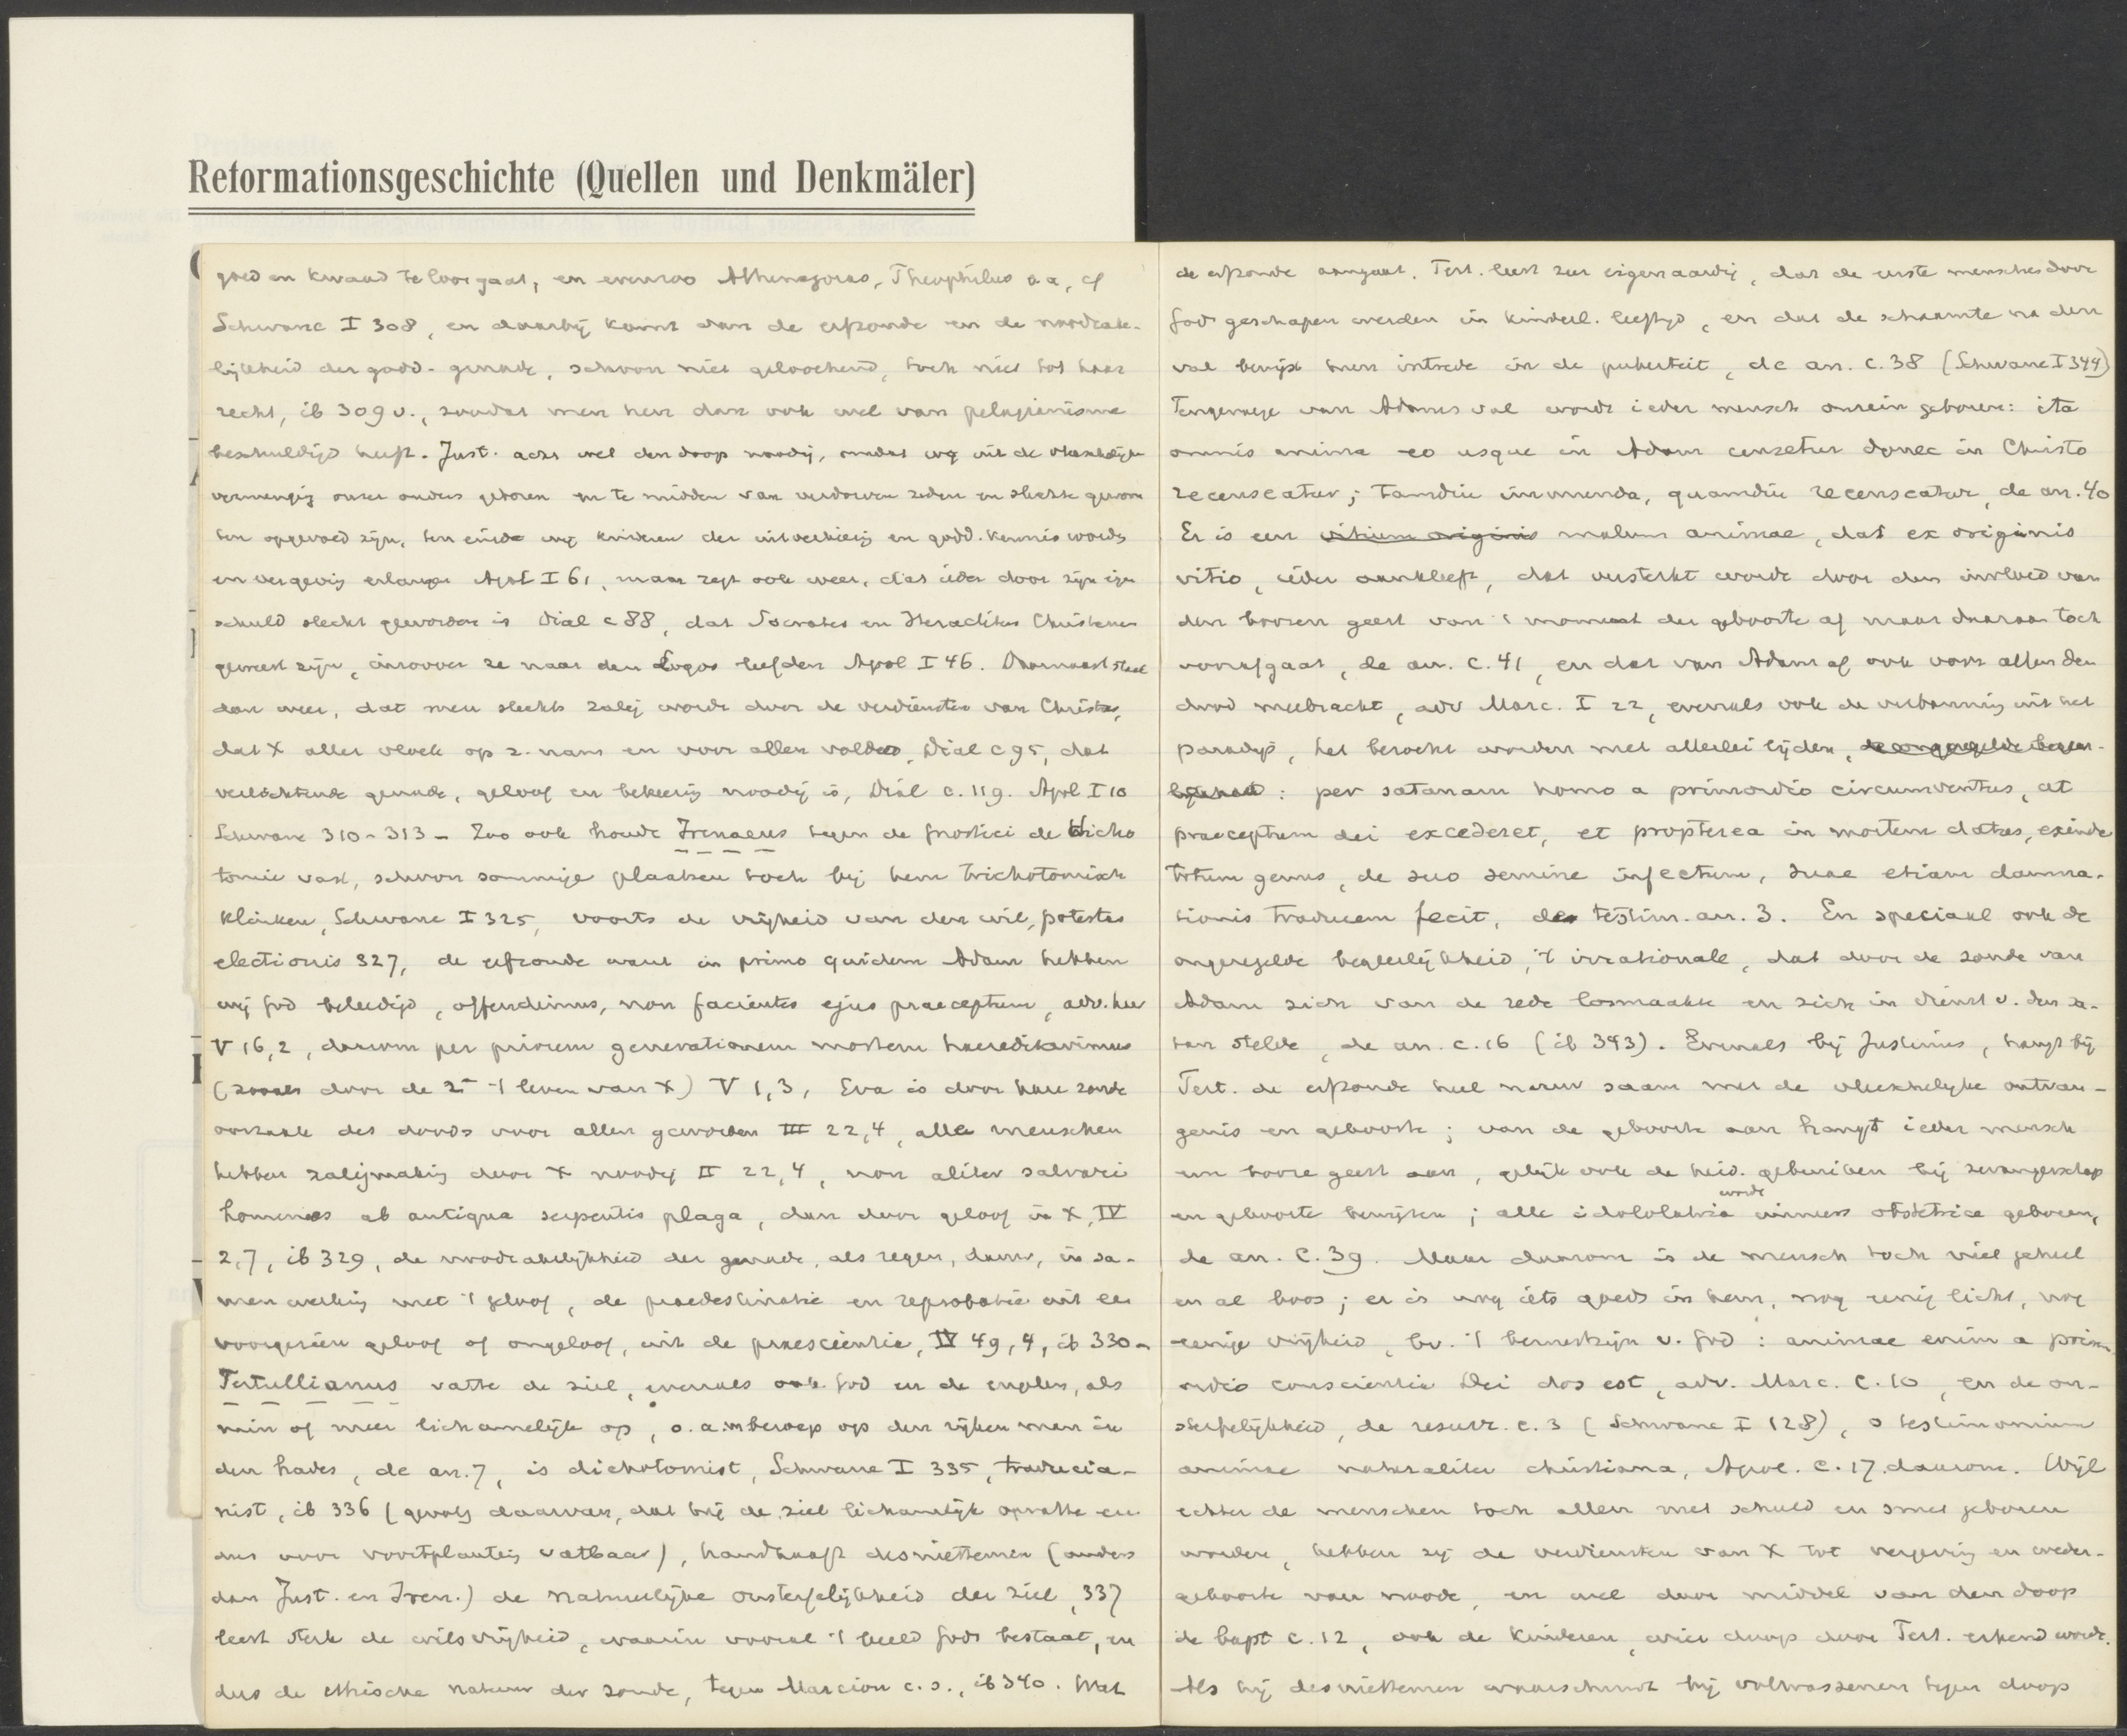 Reformationsgeschichte (Quellen und Denkmäler)
goed en kwaad te loor gaat, en evenzoo Athenagoras, Theophilus a a, cf
Schwane I 308, en daarbij komt dan de erfzonde en de noodzake-
lijkheid der godd. genade, schoon niet geloochend, toch niet tot haar
recht, ib 309 v., zoodat men hen dan ook wel van pelagianisme
beschuldigd heeft. Just. acht wel den doop noodig, omdat wij uit de vleeschelijke
vermenging onzer ouders geboren en te midden van verdorven zeden en slechte gewoon
ten opgevoed zijn, ten einde wij kinderen der uitverkiezing en godd. kennis worden
en vergeving erlangen Apol I 61, maar zegt ook weer, dat ieder door zijn eigen
schuld slecht geworden is Dial c 88, dat Socrates en Heraclitus Christenen
geweest zijn, inzoover ze naar den Logos leefden Apol I 46. Daarnaast staat
dan weer, dat men slechts zalig wordt door de verdiensten van Christus,
dat X aller vloek op z. nam en voor allen voldeed, Dial c 95, dat
verlichtende genade, geloof en bekeering noodig is, Dial c. 119. Apol I 10
Schwane 310-313 - Zoo ook houdt Irenaeus tegen de gnostici de dicho
tomie vast, schoon sommige plaatsen toch bij hem trichotomisch
klinken, Schwane I 325, voorts de vrijheid van den wil, potestas
electionis 327, de erfzonde want in primo quidem Adam hebben
wij God beleedigd, offendimus, non facientes ejus praeceptum, adv. haer
V 16,2, daarom per priorem generationem mortem haereditavimus
(zooals door de 2e 't leven van X) V 1,3, Eva is door hare zonde
oorzaak des doods voor allen geworden III 22,4, alle menschen
hebben zaligmaking door X noodig II 22,4, non aliter salvari
homines ab antiqua serpentis plaga, dan door geloof in X, IV
2,7, ib 329, de noodzakelijkheid der genade, als regen, dauw, in sa-
menwerking met 't geloof, de praedestinatie en reprobatie uit een
voorgezien geloof of ongeloof, uit de praescientie, IV 49,4, ib 330 -
Tertullianus vatte de ziel, evenals ook God en de engelen, als
min of meer lichamelijk op, o. a. m beroep op den rijken man in
den hades, de an. 7, is dichotomist, Schwane I 335, traducia-
nist, ib 336 (gevolg daarvan, dat hij de ziel lichamelijk opvatte en
dus voor voortplanting vatbaar), handhaaft desniettemin (anders
dan Just. en Iren.) de natuurlijke onsterfelijkheid der ziel, 337
leert sterk de wilsvrijheid, waarin vooral 't beeld Gods bestaat, en
dus de ethische natuur der zonde, tegen Marcion c. s., ib 340. Wat
de erfzonde aangaat. Tert. leert zeer eigenaardig, dat de eerste menschen door
God geschapen werden in kinderl. leeftijd, en dat de schaamte na den
val bewijst hun intrede in de puberteit, de an. c. 38 (Schwane I 344)
Tengevolge van Adams val wordt ieder mensch onrein geboren: ita
omnis anima eo usque in Adam censetur donec in Christo
recenseatur; tamdiu immunda, quamdiu recenseatur, de an. 40
Er is een vitium originis malum animae, dat ex originis
vitio, ieder aankleeft, dat versterkt wordt door den invloed van
den boozen geest van 't moment der geboorte af maar daaraan toch
voorafgaat, de an. c. 41, en dat van Adam af ook voor allen den
dood meebracht, adv Marc. I 22, evenals ook de verbanning uit het
paradijs, het bezocht worden met allerlei lijden, de ongeregelde begeer-
lijkheid: per satanam homo a primordio circumventus, ut
praeceptum dei excederet, et propterea in mortem datus, exinde
totum genus, de suo semine infectum, suae etiam damna-
tionis traducem fecit, de testim. an. 3. En speciaal ook de
ongeregelde begeerlijkheid, 't irrationale, dat door de zonde van
Adam zich van de rede losmaakte en zich in dienst v. den sa-
tan stelde, de an. c. 16 (ib 343). Evenals bij Justinus, hangt bij
Tert. de erfzonde heel nauw saam met de vleeschelijke ontvan-
genis en geboorte; van de geboorte aan hangt ieder mensch
een booze geest aan, gelijk ook de heid. gebruiken bij zwangerschap
en geboorte bewijzen; alle idololatria wordt obstetrice geboren,
de an. c. 39. Maar daarom is de mensch toch niet geheel
en al boos; er is nog iets goeds in hem, nog eenig licht, nog
eenige vrijheid, bv. 't bewustzijn v. God: animae enim a prim-
ordio conscientia Dei dos est, adv. Marc. c. 10, en de on-
sterfelijkheid, de resurr. c. 3 (Schwane I 128), o testimonium
animae naturaliter christiana, Apol. c. 17. daarom. Wijl
echter de menschen toch allen met schuld en smet geboren
worden, hebben zij de verdiensten van X tot vergeving en weder-
geboorte van noode, en wel door middel van den doop
de bapt c. 12, ook de kinderen, wier doop door Tert. erkend wordt.
Als hij desniettemin waarschuwt bij volwassenen tegen doop